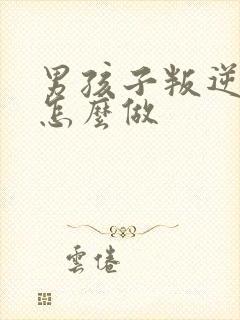 男孩子叛逆
怎麼做
雲倦